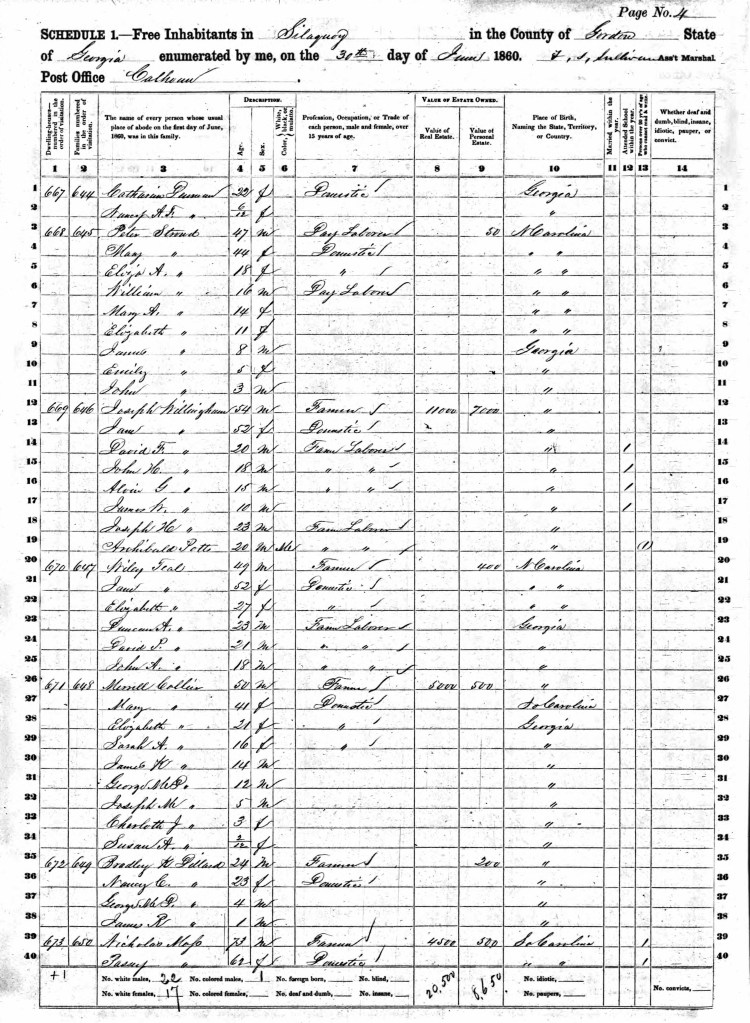 Page No. 4
SCHEDULE 1.—Free Inhabitants in Silaquoy in the County of Gordon State
of Georgia enumerated by me, on the 30th day of June 1860. Ass't Marshal
Post Office Calhoun
DESCRIPTION. VALUE OF ESTATE OWNED.
Dwelling-houses—numbered in the order of visitation. Families numbered in the order of visitation. The name of every person whose usual place of abode on the first day of June, 1860, was in this family. Age. Sex. Color, White, black, or mulatto. Profession, Occupation, or Trade of each person, male and female, over 15 years of age. Value of Real Estate. Value of Personal Estate. Place of Birth, Naming the State, Territory, or Country. Married within the year. Attended School within the year. Persons over 20 y'rs of age who cannot read & write. Whether deaf and dumb, blind, insane, idiotic, pauper, or convict.
1 2 3 4 5 6 7 8 9 10 11 12 13 14
1 667 644 Catharine 22 f Domestic Georgia 1
2 Nancy A. F. " 6/12 f " 2
3 668 645 Peter Stroud 47 m Day Laborer 50 N Carolina 3
4 Mary " 44 f Domestic " " 4
5 Eliza A. " 18 f " " " 5
6 William " 16 m Day Laborer " " 6
7 Mary A. " 14 f " " 7
8 Elizabeth " 11 f " " 8
9 James " 8 m Georgia 9
10 Emily " 5 f " 10
11 John " 3 m " 11
12 669 646 Joseph Willingham 54 m Farmer 11000 7000 " 12
13 Jane " 52 f Domestic " 13
14 David F. " 20 m Farm Laborer " 1 14
15 John H. " 18 m " " " 1 15
16 Alvin G " 15 m " " " 1 16
17 James W. " 10 m " 1 17
18 Joseph H " 23 m Farm Laborer " 18
19 Archibald Potts 20 m Mu " " " (1) 19
20 670 647 Wiley Teal 49 m Farmer 400 N Carolina 20
21 Jane " 52 f Domestic " " 21
22 Elizabeth " 27 f " " " 22
23 Duncan A. " 23 m Farm Laborer Georgia 23
24 David P. " 21 m " " " 24
25 John A. " 18 m " " " 25
26 671 648 Merrell Collier 50 m Farmer 5000 500 " 26
27 Mary " 41 f Domestic So Carolina 27
28 Elizabeth " 21 f " Georgia 28
29 Sarah A. " 16 f " " 29
30 James K " 14 m " 30
31 George McD. " 12 m " 31
32 Joseph M " 5 m " 32
33 Charloth J " 3 f " 33
34 Susan A. " 2/12 f " 34
35 672 649 Bradley H. Dillard 24 m Farmer 200 " 35
36 Nancy C. " 23 f Domestic " 36
37 George McD. " 4 m " 37
38 James R " 1 m " 38
39 673 650 Nicholas Moss 73 m Farmer 4500 500 So Carolina 1 39
40 " 62 f Domestic " " 1 40
+1 No. white males, 22 No. colored males, 1 No. foreign born, No. blind, 20,500 8,650 No. idiotic, No. convicts,
No. white females, 17 No. colored females, No. deaf and dumb, No. insane, No. paupers,